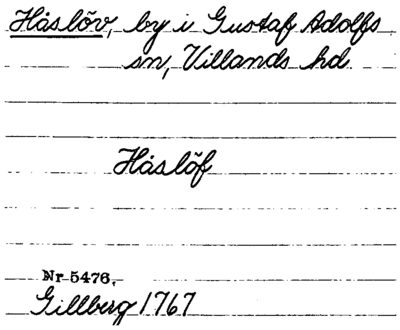 Håslöv, by i Gustaf Adolfs
sn, Villands hd
Håslöf
Nr 5476,
Gillberg 1767